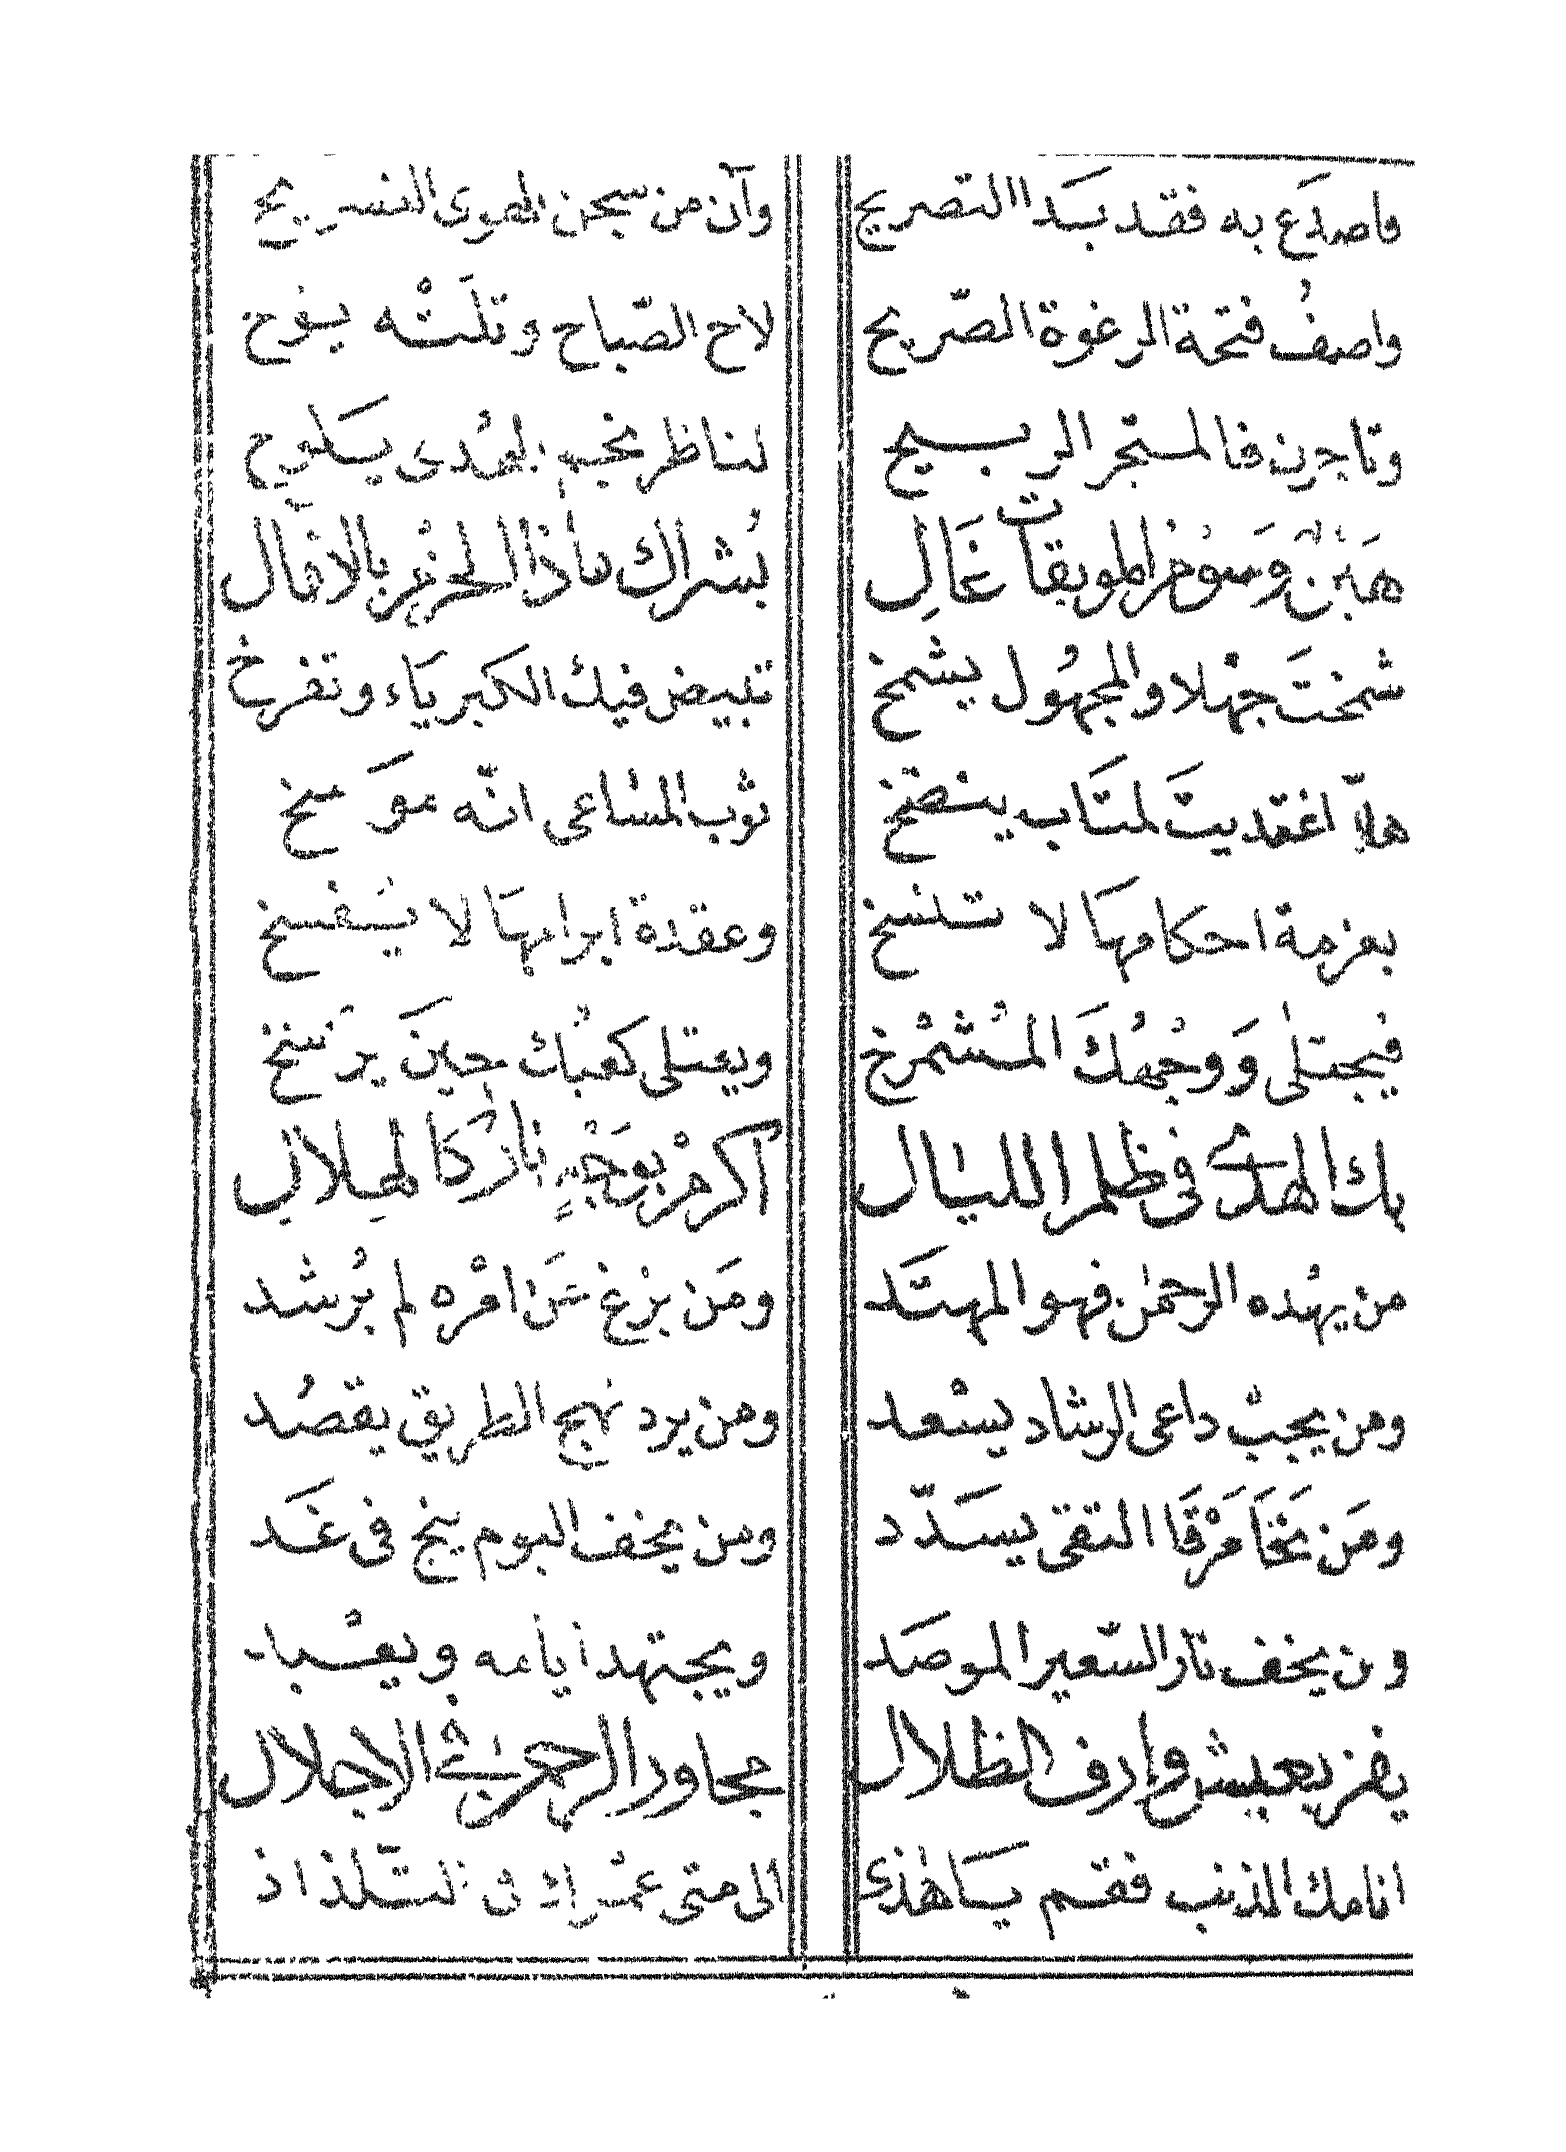 فاصدع به فقد بَدا التصريح وآن من سجن الهوى التسريح
واصفُ فتحة الرغوة الصّريح لاح الصّباح وتلَتْه يوح
وتاجرن فالمتجر الربيح لناظر الهُدى يَلوح
وَسُوق الموبقات غَالِ بُشراك ياذا الحزْم بالاقبال
شمختَ جهْلا والمجهُول يشمخ تبيض فيك الكبريَاء وتفرخ
هلاّ اغتديتَ لمتَاب ينتضخ ثوب المسَاعى انّه موَسخ
بعزمة احكامهَا لا تنسخ وعقدة ابرامهَا لا يَنفسخ
فيُجتلى وَوجْهُكَ المُشمْرخ ويعتلى كعْبُك حِينَ يرسَخ
بك الهدى في ظلم الليَال أكرمْ بوَجْهٍ نازكَا لهِلال
من يهْده الرحمٰن فهو المهتَد ومَن يزغ عَن امْره لم يُرشد
ومن يجبْ داعى الرشاد يسْعد ومن يرد نهج الطريق يقصُد
ومَن تخَامَرْقَا التقى يسَدّد ومن يخف اليوم ينج فى غَد
ومن يخف نار السّعير الموصَد ويجتهد أيامه ويعْبد
يفز بعيش وارف الظلال مجاور الرحمٰن فى الاجلال
انامك المذنب فقم يَا هٰذى الى متى عمْرك فى التّلذاذ